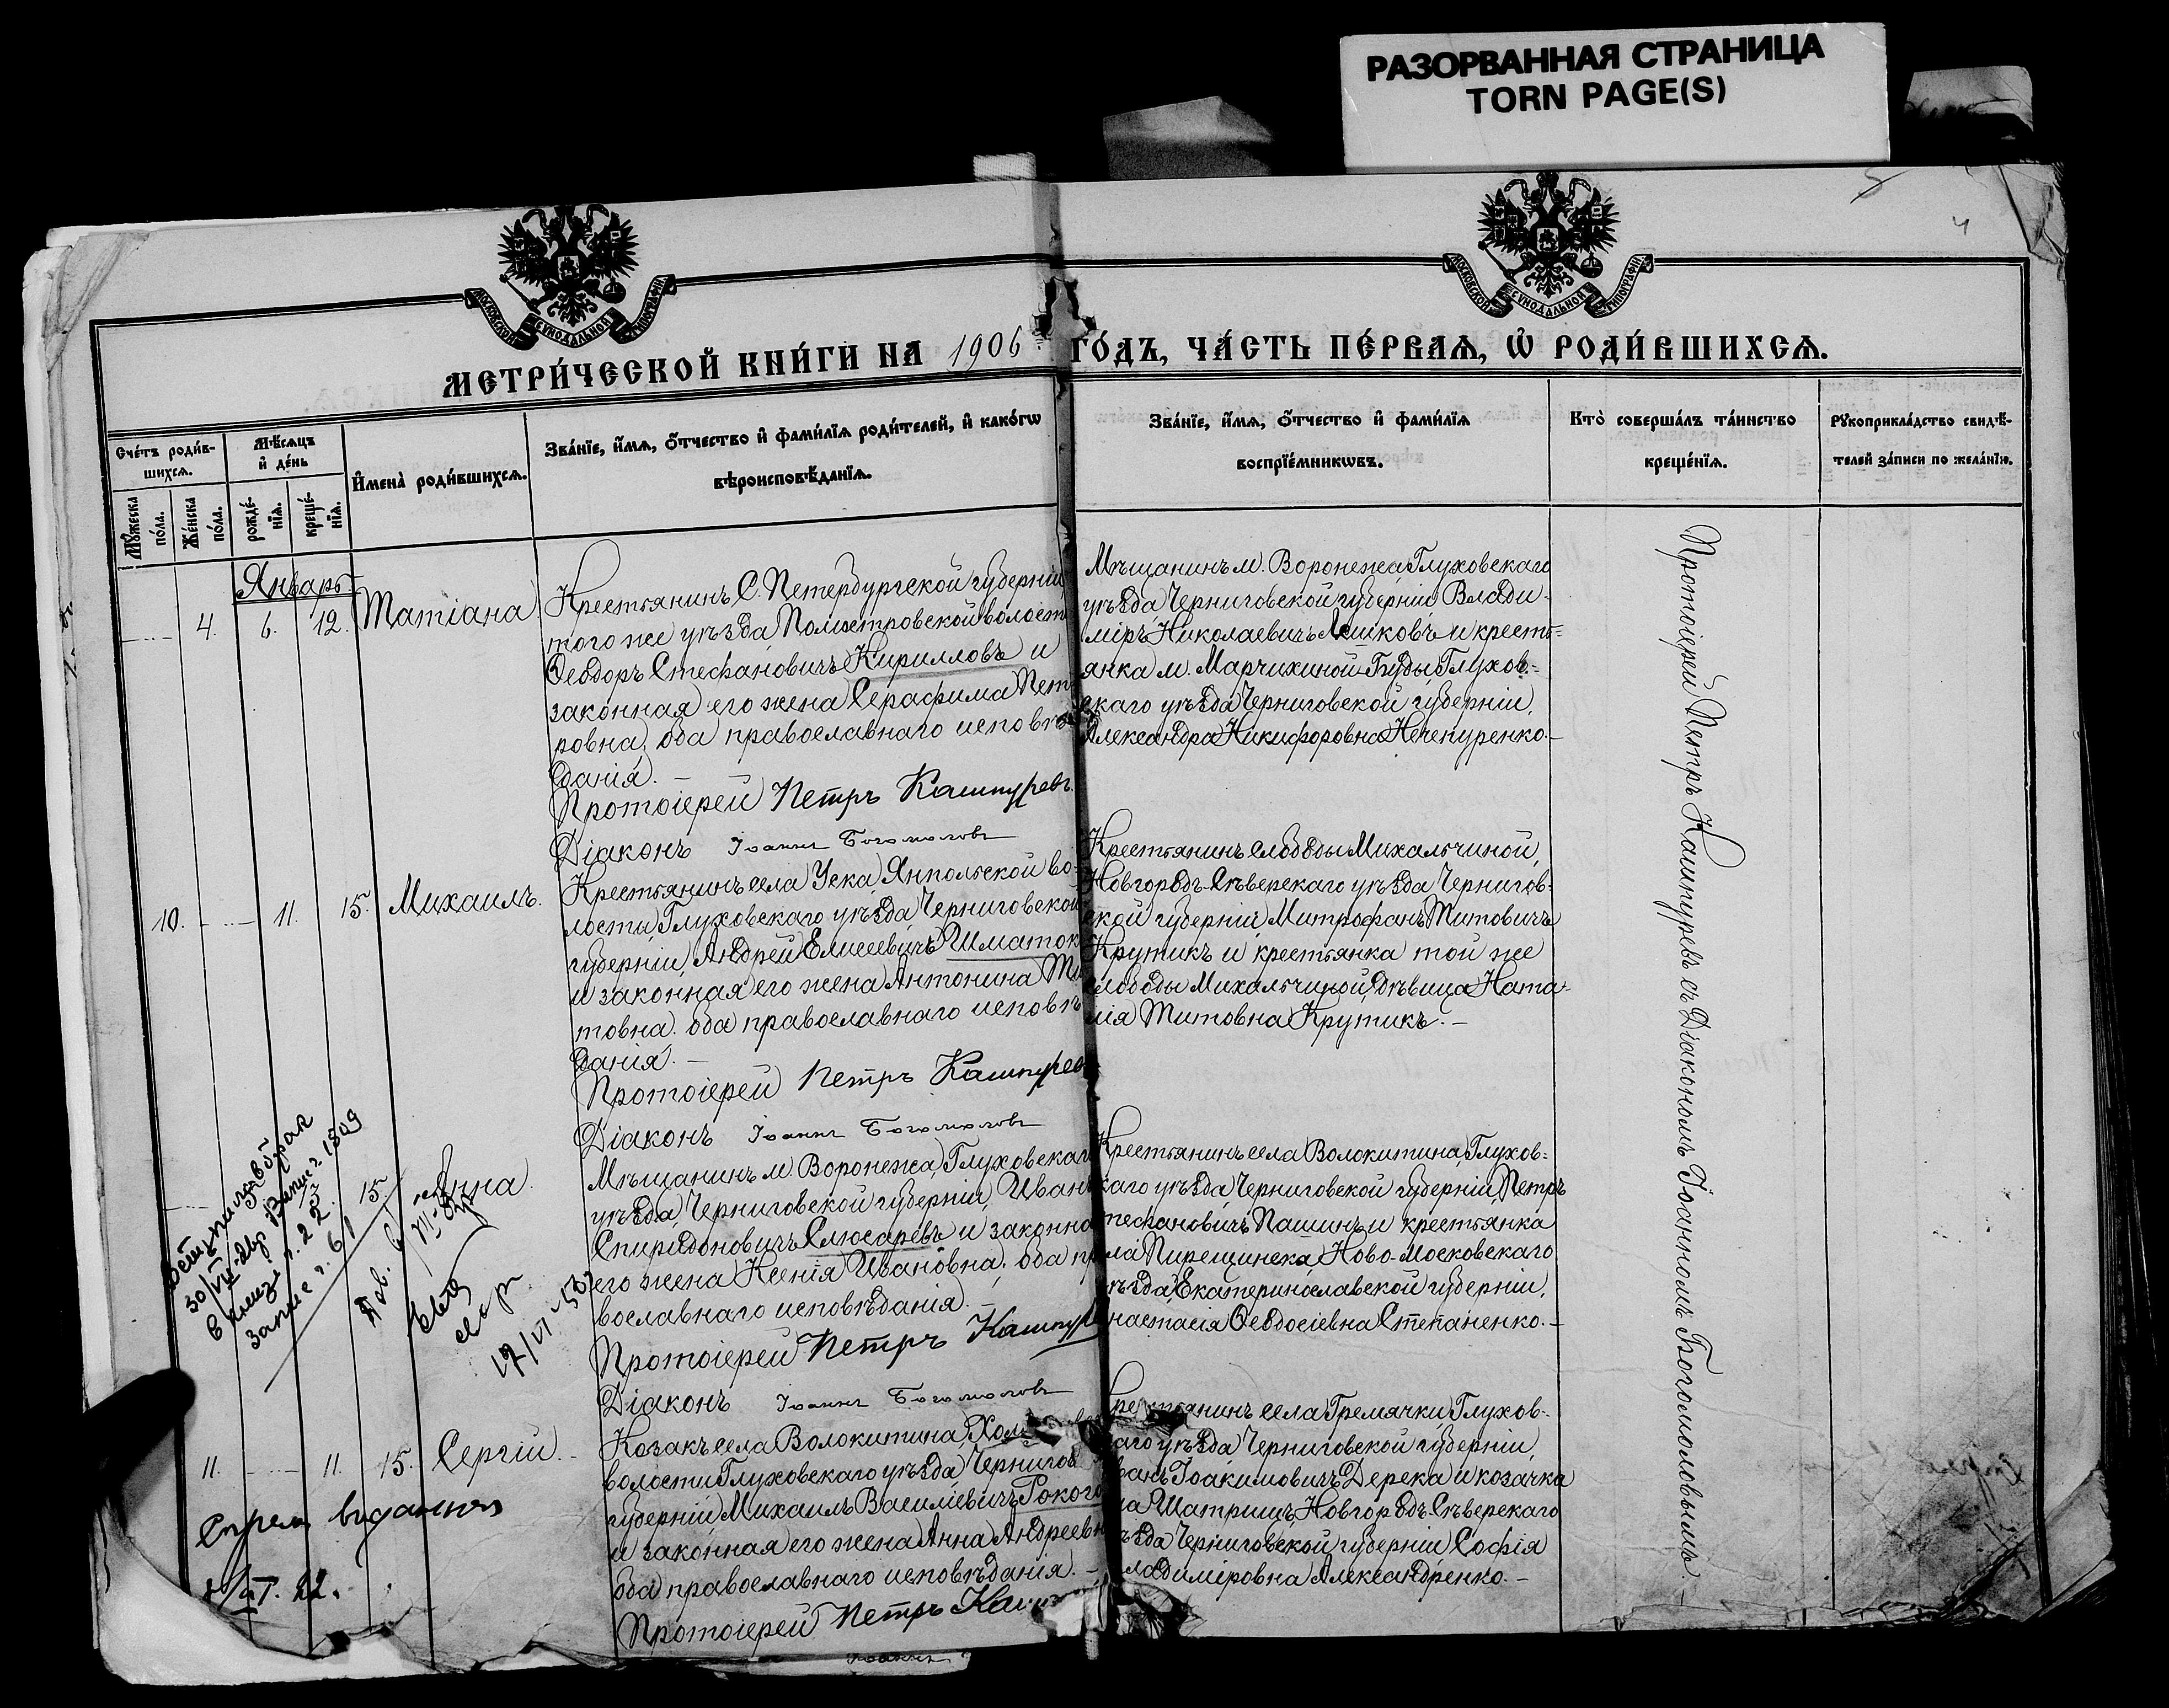 РАЗОРВАННАЯ СТРАНИЦА
TORN PAGE(S)
МОСКОВСКОЙ СѴНОДАЛЬНОЙ ТИПОГРАФІИ
МОСКОВСКОЙ СѴНОДАЛЬНОЙ ТИПОГРАФІИ
МЕТРИ́ЧЕСКОЙ КНИ́ГИ НА 1906 ГО́ДЪ, ЧА́СТЬ ПЕ́РВАѦ, Ѡ РОДИ́ВШИХСѦ.
Сче́тъ роди́в-
шихсѧ.
Мꙋ́жеска по́ла.
Же́нска по́ла.
Мѣ́сѧцъ
и҆ де́нь
рожде́-
нїѧ.
креще́-
нїѧ.
И҆мена̀ роди́вшихсѧ.
Зва́нїе, и҆́мѧ, ѻ҆́тчество и҆ фами́лїѧ роди́телей, и҆ како́гѡ
вѣроисповѣ́данїѧ.
Зва́нїе, и҆́мѧ, ѻ҆́тчество и҆ фами́лїѧ
воспрїе́мникѡвъ.
Кто̀ соверша́лъ та́инство
креще́нїѧ.
Рꙋкоприкла́дство свидѣ́-
телей за́писи по жела́нїю.
Январь
4. 6. 12. Татіана
Крестьянинъ С. Петербургской губерніи
того же уѣзда, Полюстровской волости
Ѳеодоръ Стефановичъ Кирилловъ и
законная его жена Серафима Пет-
ровна, оба православнаго исповѣ-
данія. —
Протоіерей Петръ Кашпуревъ.
Діаконъ Іоаннъ Богомоловъ
Мѣщанинъ м. Воронежа, Глуховскаго
уѣзда Черниговской губерніи Влади-
міръ Николаевичъ Лешковъ и кресть-
янка м. Марчихиной-Буды, Глухов-
скаго уѣзда Черниговской губерніи,
Александра Никифоровна Нечепуренко. —
10. 11. 15. Михаилъ.
Крестьянинъ села Уска, Янпольской во-
лости, Глуховскаго уѣзда, Черниговской
губерніи, Андрей Елисеевичъ Шматок
и законная его жена Антонина Ти-
товна. оба православнаго исповѣ-
данія. —
Протоіерей Петръ Кашпурев
Діаконъ Іоаннъ Богомоловъ
Крестьянинъ слободы Михальчиной,
Новгородъ-Сѣверскаго уѣзда Чернигов-
ской губерніи Митрофанъ Титовичъ
Крутикъ и крестьянка той же
слободы Михальчиной, дѣвица Ната-
лія Титовна Крутикъ. —
15 Анна.
Мѣщанинъ м. Воронежа, Глуховскаго
уѣзда, Черниговской губерніи, Иван
Спиридоновичъ Слюсаревъ и законна
его жена Ксенія Ивановна, оба пр
вославнаго исповѣданія.
Протоіерей Петръ Кашпур
Діаконъ Іоаннъ Богомоловъ
Крестьянинъ села Волокитина, Глухов-
скаго уѣзда Черниговской губерніи, Петръ
Стефановичъ Пашинъ и крестьянка
ла Пирещинска, Ново-Московскаго
ѣзда, Екатеринославской губерніи,
настасія Ѳеодосіевна Степаненко. —
30/VII
17/VI-53
11. 11. 15. Сергій. —
Козакъ села Волокитина, Хол
волости Глуховскаго уѣзда, Чернигов
губерніи, Михаилъ Василіевичъ Рокого
и законная его жена Анна Андреевн
оба православнаго исповѣданія. —
Протоіерей Петръ Каш
Крестьянинъ села Гремячки, Глухов-
каго уѣзда, Черниговской губерніи,
ванъ Іоакимовичъ Дерека и козачка
ла Шатрищъ, Новгородъ-Сѣверскаго
ѣзда Черниговской губерніи Софія
ладиміровна Александренко. —
22.
Протоіерей Петръ Кашпуревъ съ Діакономъ Іоанномъ Богомоловымъ —